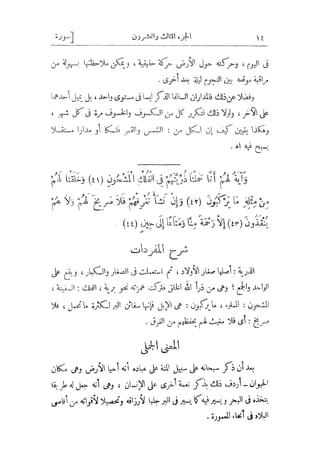 ١٤ الجزء الثالث والعشرون [سورة
فى اليوم ، وحركته حول الأرض حركة حقيقية ، ويمكن ملاحظتها بسهولة من
مراقبة موقعه بين النجوم ليلة بعد أخرى .
وفضلا عن ذلك فالمداران السالفا الذكر ليسا فى مستوى واحد ، بل يميل أحدهما
على الآخر ، ولولا ذلك لتكرر كل من الكسوف والخسوف مرة فى كل شهر ،
وهكذا يتبين كيف إن لكل من : الشمس والقمر فلكا أو مدارا مستقلا
يسبح فيه اه .
وَآيَةٌ لَهُمْ أَنَّا حَمَلْنَا ذُرِّيَّتَهُمْ فِى الْفُلْكِ الْمَشْحُونِ (٤١) وَخَلَقْنَا لَهُمْ
مِنْ مِثْلِهِ مَا يَرْكَبُونَ (٤٢) وَإِنْ نَشَأْ نُغْرِقْهُمْ فَلَا صَرِيخَ لَهُمْ وَلَا هُمْ
يُنْقَذُونَ (٤٣) إِلَّا رَحْمَةً مِنَّا وَمَتَاعًا إِلَى حِينٍ (٤٤) .
شرح المفردات
الذرية : أصلها صغار الأولاد ، ثم استعملت فى الصغار والكبار ، ويقع على
الواحد والجمع ؛ وهى من ذرأ الله الخلق فتركت همزته نحو برية ، الفلك : السفينة ،
المشحون : المملوء ، ما يركبون : هى الإبل فإنها سفائن البر لكثرة ما تحمل ، فلا
صريخ : أى فلا مغيث لهم يحفظهم من الغرق .
المعنى الجملى
بعد أن ذكر سبحانه على سبيل المنة على عباده أنه أحيا الأرض وهى مكان
الحيوان ـ أردف ذلك بذكر نعمة أخرى على الإنسان ، وهى أنه جعل له طريقا
يتخذه فى البحر ويسير فيه كما يسير فى البر جلبا لأرزاقه وتحصيلا لأقواته من أقاصى
البلاد فى أنحاء المعمورة .